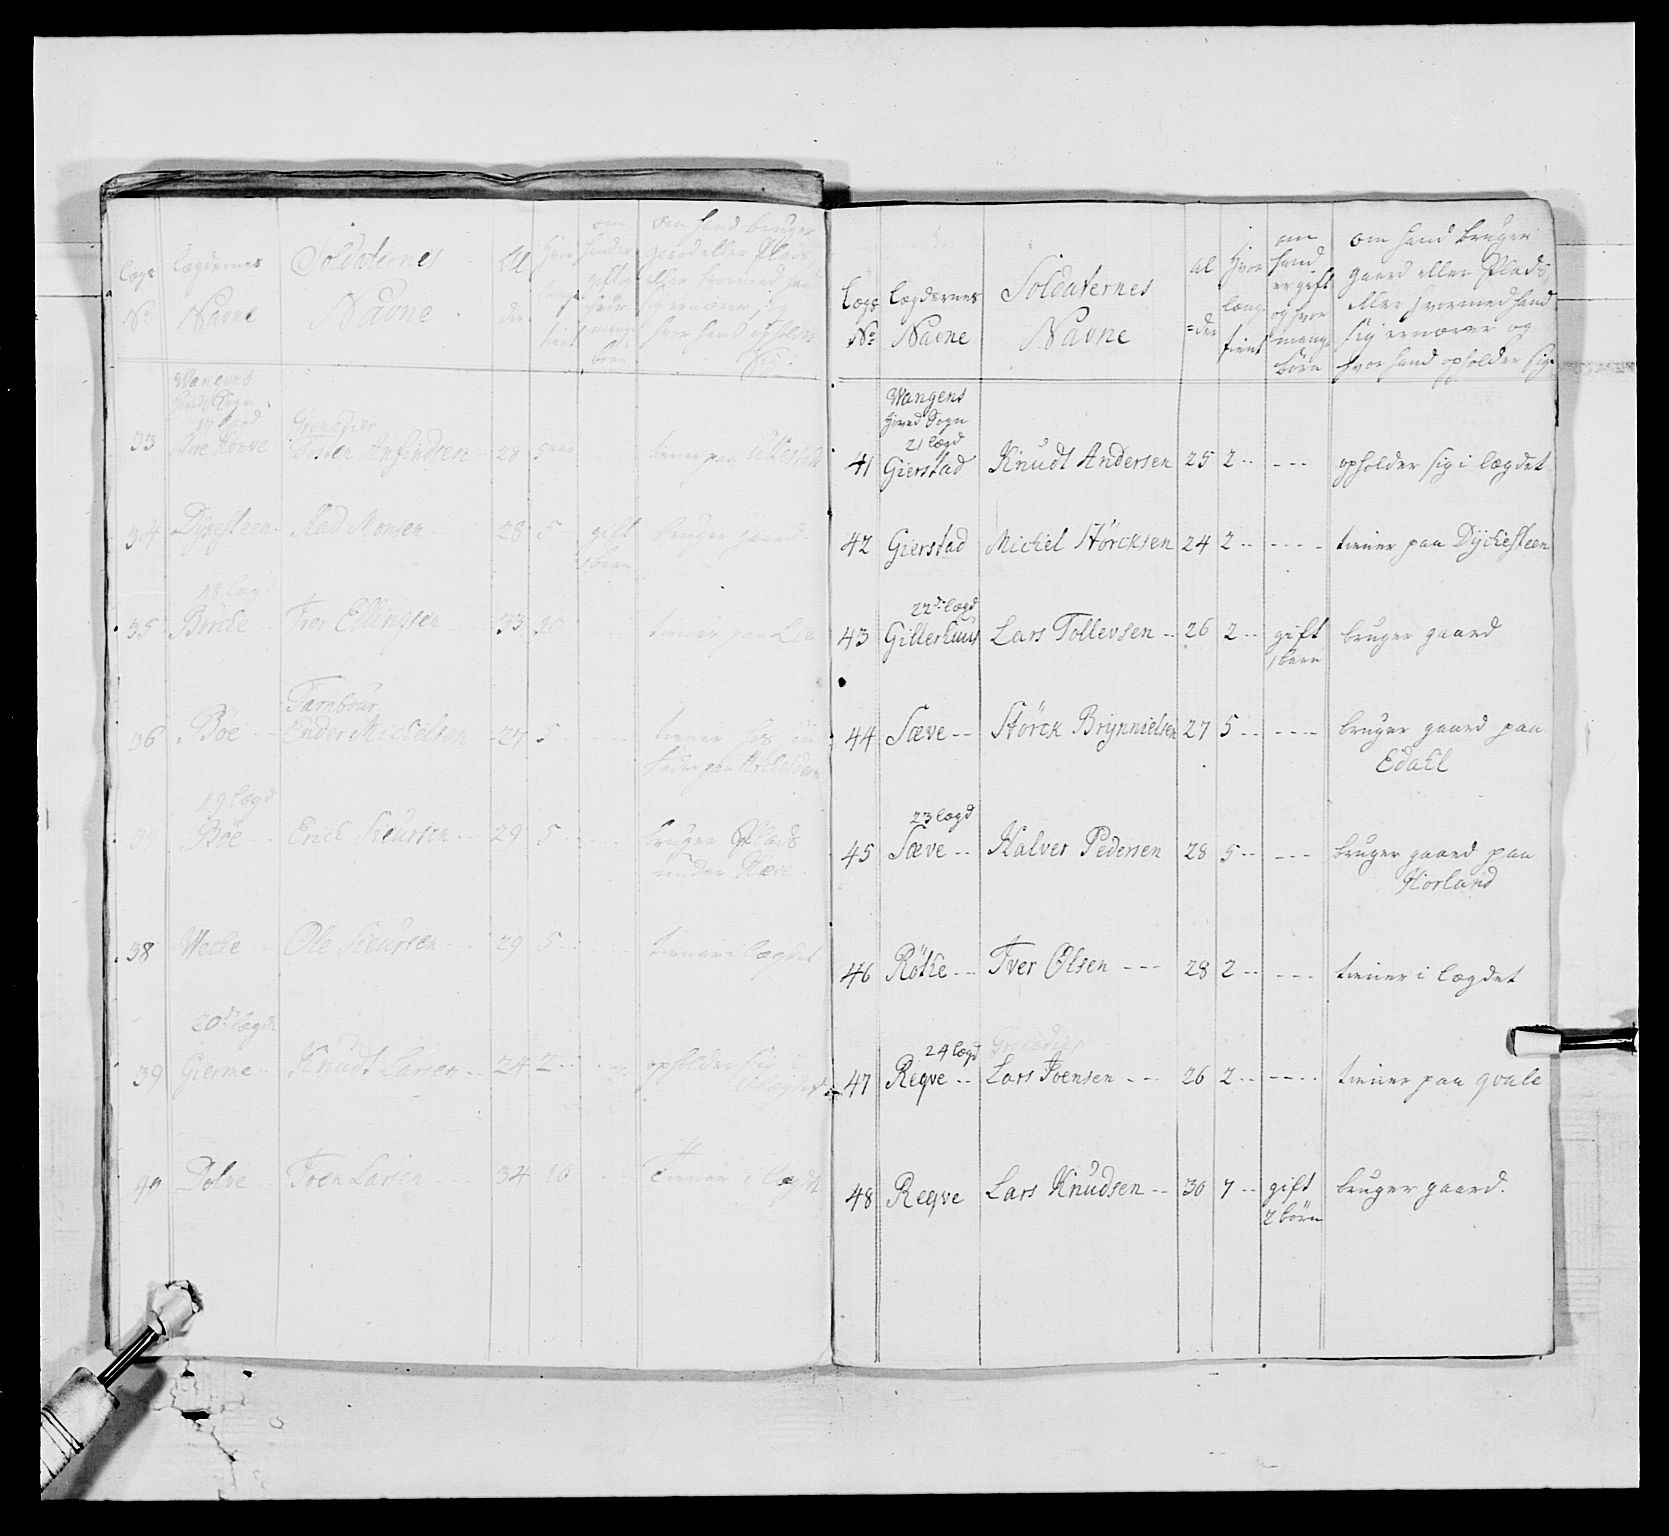 Lægs
No
Lægdernes
Navne
Soldaternes
Navne
Al
der
Hvor
længe
tient
om
hand er
gift og
hvor
mange
børn
om hand bruger
gaard eller Plads
eller hvormed hand
sig ernærer, og
hvor hand opholder
Sig.
Wangens
Hoved Sogn
17 lægd
Grenadier
33 Torsten Anfindsen 28 5 aar tiener paa Ullestad
34 Dykesteen Aad Monsen 28 5 gift bruger gaard
1 barn
18 lægd
35 Børcke Iver Ellingsen 33 10 tiener paa Lie
Tambour
36 Bøe -- Ender Michelsen 27 5 tiener hos sin
fader paa
19 lægd
37 Bøe Erick Siursen -- 29 5 bruger Plads
under Hæve.
38 Wecke Ole Siursen 29 5 tiener i lægdet
20de lægd
39 Gierme -- Knudt Larsen -- 24 2 -- opholder sig i
lægdet
40 Dolve Iven Larsen 34 10 Tiener i lægdet
Lægs
No
Lægdernes
Navne
Soldaternes
Navne
al
=der
Hvor
længe
tient
om
hand
er gift
og hvor
mange
børn
om hand bruger
gaard eller Plads,
eller hvormed hand
sig ernærer og
hvor hand opholder sig.
Wangens
Hoved Sogn
21 lægd
41 Gierstad Knudt Andersen 25 2 -- --- opholder sig i lægdet
42 Gierstad Michel Størcksen 24 2 -- ---- tiener paa Dyckesteen
22de lægd
43 Gillerhuus Lars Tollevsen -- 26 2 -- gift bruger gaard
1 barn
44 Sæve -- Størck Brynnielsen 27 5 -- ---- bruger gaard paa
Edahl
23 lægd
45 Sæve -- Halver Pedersen 28 5 -- --- bruger gaard paa
Horland
46 Røthe -- Iver Olsen --- 28 2 -- --- tiener i lægdet
24 lægd Grenadier
47 Reqve -- Lars Ivensen --- 26 2 -- ---- tiener paa qvale
48 Reqve Lars Knudsen -- 30 7 -- gift bruger gaard.
2 børn